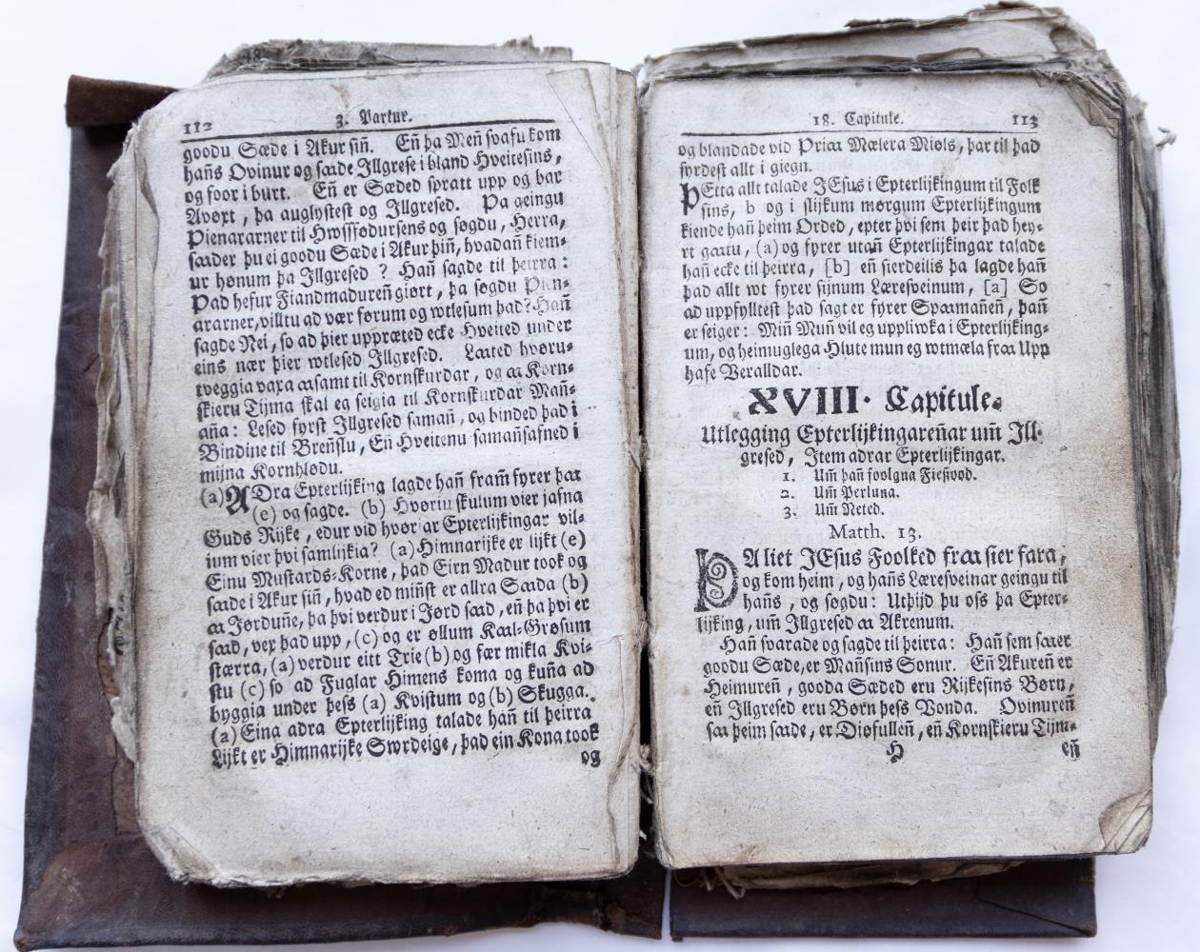 112 3. Partur.
goodu Sæde i Akur siñ. Eñ þa Meñ svafu kom
hañs Ovinur og sæde Illgrese i bland Hveitesins,
og foor i burt. Eñ er Sæded spratt upp og bar
Avøxt, þa auglystest og Illgresed. Þa geingu
Þienararner til Hwssfødursens og søgdu, Herra,
særder þu ei goodu Sæde i Akur þiñ, hvadañ kiem-
ur hønum þa Illgresed ? Hañ sagde til þeirra :
Þad hefur Fiandmadureñ giørt, þa søgdu Þien-
ararner, villtu ad vær førum og wtlesum þad? Hañ
sagde Nei, so ad þier uppræted ecke Hveited under
eins nær þier wtlesed Illgresed. Læted hvøru-
tveggia vaxa æsamt til Kornskurdar, og æ Korn-
skieru Tijma skal eg seigia til Kornskurdar Mañ-
aña: Lesed fyrst Illgresed samañ, og binded þad i
Bindine til Breñslu, Eñ Hveitenu samañsafned i
mijna Kornhlødu.
(a) ADra Epterlijking lagde hañ fram̃ fyrer þæ
(e) og sagde. (b) Hvoriu skulum vier jafna
Guds Rijke, edur vid hvøriar Epterlijkingar vil-
ium vier þvi samlijkia? (a) Himnarijke er lijkt (e)
Einu Mustards-Korne, þad Eirn Madur took og
sæde i Akur siñ, hvad ed miñst er allra Sæda (b)
æ Jørduñe, þa þvi verdur i Jørd sæd, eñ þa þvi er
sæd, vex þad upp, (c) og er øllum Kæl-Grøsum
stærra, (a) verdur eitt Trie (b) og fær mikla Kvi-
stu (c) so ad Fuglar Himens koma og kuña ad
byggia under þess (a) Kvistum og (b) Skugga.
(a) Eina adra Epterlijking talade hañ til þeirra
Lijkt er Himnarijke Swrdeige, þad ein Kona took
og
18. Capitule. 113
og blandade vid Þriæ Mælera Miøls, þar til þad
syrdest allt i giegn.
ÞEtta allt talade JEsus i Epterlijkingum til Folk
sins, b og i slijkum mørgum Epterlijkingum
kiende hañ þeim Orded, epter þvi sem þeir þad hey-
rt gætu, (a) og fyrer utañ Epterlijkingar talade
hañ ecke til þeirra, [b] eñ sierdeilis þa lagde hañ
þad allt wt fyrer sijnum Læresveinum, [a] So
ad uppfylltest þad sagt er fyrer Spæmañeñ, þañ
er seiger: Miñ Muñ vil eg upplwka i Epterlijking-
um, og heimuglega Hlute mun eg wtmæla fræ Upp
hafe Veralldar.
XVIII. Capitule.
Utlegging Epterlijkingareñar um̃ Ill-
gresed, Item adrar Epterlijkingar.
1. Um̃ þañ foolgna Fiesiood.
2. Um̃ Perluna.
3. Um̃ Neted.
Matth. 13.
ÞA liet JEsus Foolked fræ sier fara,
og kom heim, og hañs Læresveinar geingu til
hañs, og søgdu: Uthijd þu oss þa Epter-
lijking, um̃ Illgresed æ Akrenum.
Hañ svarade og sagde til þeirra: Hañ sem sæer
goodu Sæde, er Mañsins Sonur. Eñ Akureñ er
Heimureñ, gooda Sæded eru Rijkesins Børn,
eñ Illgresed eru Børn þess Vonda. Ovinureñ
sæ þeim sæde, er Diøfulleñ, eñ Kornskieru Tijm-
H eñ